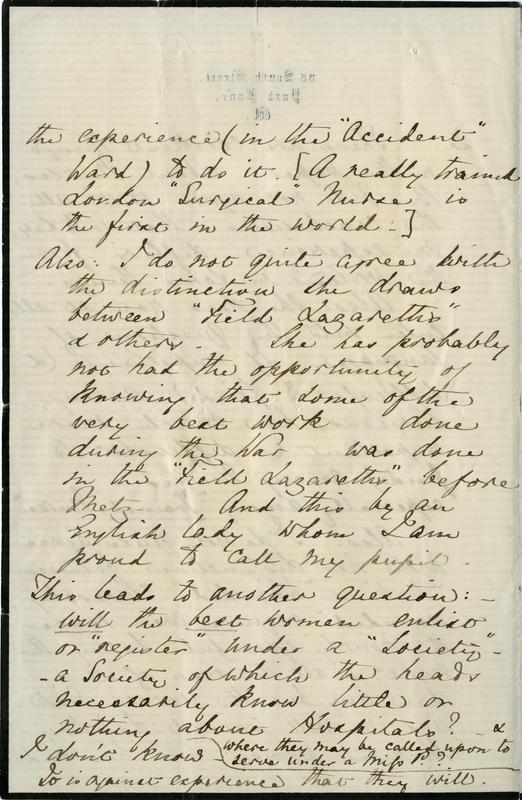 35 South Street,
Park Lane,
W.
the experience (in the "Accident"
Ward) to do it. [A really trained
London "Surgical" Nurse is
the first in the world:-]
Also: I do not quite agree with
the distinction she draws
between "Field Lazareths"
& others. She has probably
not had the opportunity of
knowing that some of the
very best work done
during the War was done
in the "Field Lazareths" before
Metz. And this by an
English lady whom I am
proud to call my pupil.
This leads to another question:-
will the best women enlist
or "register" under a "Society"-
- a Society of which the heads
necessarily know little or
nothing about Hospitals? - &
where they may be called upon to
serve under a Miss P.?
I don't know -
It is against experience that they will.